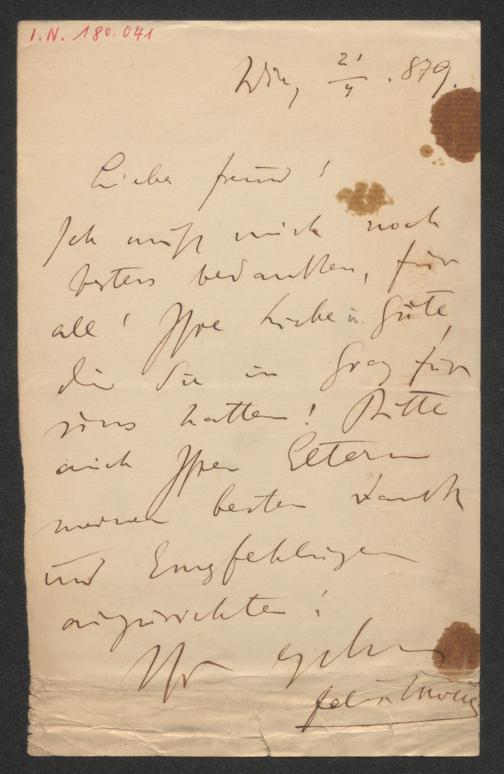 I.N. 180.041
Wien, 21/4 . 879.
Lieber Freund!
Ich muß mich noch
bestens bedanken, für
all' Ihre Liebe u. Güte,
die Sie in Graz für
uns hatten! Bitte
auch Ihren Eltern
meinen besten Dank
und Empfehlungen
auszurichten!
Ihr
Felix Mottl